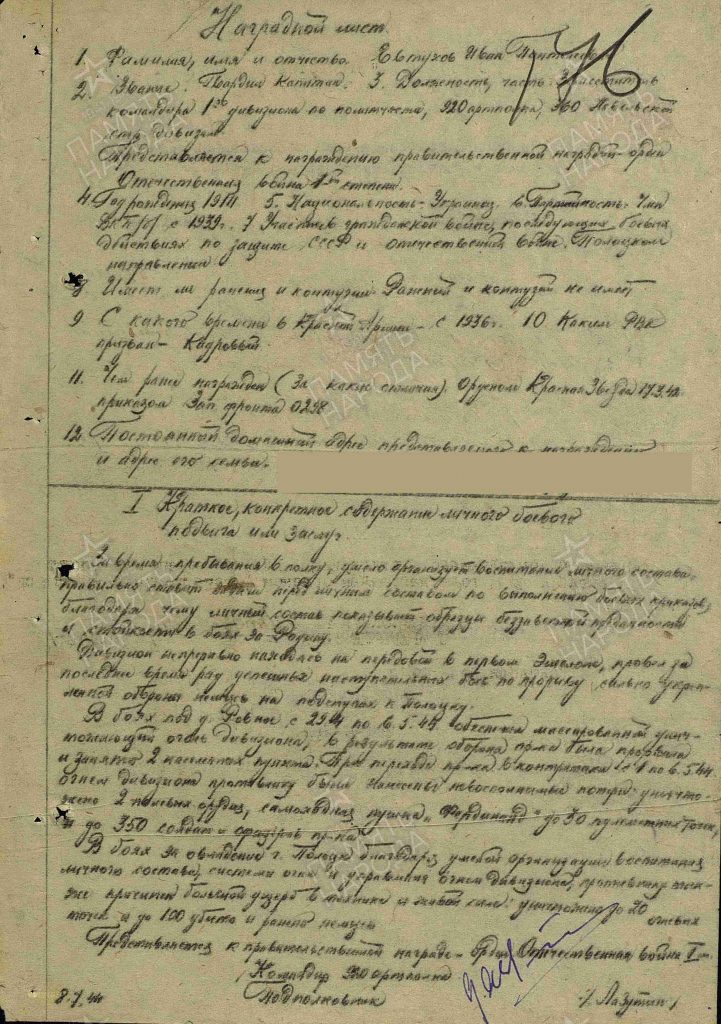 Наградной лист.
76
1. Фамилия, имя и отчество. Евтухов Иван
2. Звание. Гвардии Капитан. 3. Должность, часть. Заместитель
командира 1го дивизиона по политчасти, 920 артполка, 360 Невельской
стр. дивизии
Представляется к награждению правительственной наградой - орден
Отечественная война 1ой степени.
4. Год рождения 1914 5. Национальность - Украинец. 6. Партийность - Член
ВКП/б/ с 1939г. 7 Участие в гражданской войне, последующих боевых
действиях по защите СССР и отечественной войне. Полоцком
направлении
8. Имеет ли ранения и контузии. Ранений и контузий не имеет
9 С какого времени в Красной Армии - с 1936г. 10 Каким РВК
призван - Кадровый.
11. Чем ранее награжден (за какие отличия) Орденом Красная Звезда
приказом Зап фронта 0298
12. Постоянный домашний адрес представляемого к награждению
и адрес его семьи.
I Краткое, конкретное содержание личного боевого
подвига или заслуг.
За время пребывания в полку, умело организует воспитание личного состава
правильно ставит перед личным составом по выполнению боевых приказов,
благодаря чему личный состав показывает образцы беззаветной преданности
и стойкости в боях за Родину.
Дивизион непрерывно находясь на передовой в первом эшелоне, провел за
последнее время ряд успешных наступательных боев по прорыву сильно укреп-
ленной обороны немцев на подступах к Полоцку.
В боях под д. Ровное с по обеспечил массированный унич-
тожающий огонь дивизиона, в результате оборона пр-ка была прорвана
и заняты 2 населенных пункта. При переходе пр-ка в контратаки с 1 по
огнем дивизиона противнику были нанесены невосполнимые потери: уничто-
жено 2 полевых орудия, самоходная пушка „Фердинанд" до 30 пулеметных точек,
и до 350 солдат и офицеров пр-ка
В боях за овладение г. Полоцк благодаря умелой организации воспитания
личного состава, системы огня и управления огнем дивизиона, противнику так-
же причинен большой ущерб в технике и живой силе: уничтожено до 20 огневых
точек и до 100 убито и ранено немцев
Представляется к правительственной награде - орден Отечественная война I ст.
Командир 920 артполка
Подполковник / Лазутин /
8.7.44
ПАМЯТЬ НАРОДА
ПАМЯТЬ НАРОДА
ПАМЯТЬ НАРОДА